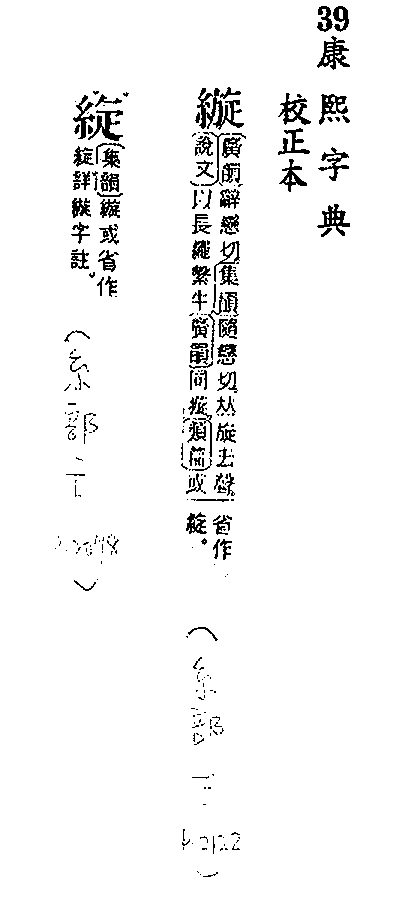 39康熙字典
校正本
縼
廣韻辭戀切集韻隨戀切𠀤旋去聲
說文以長繩繫牛廣韻同縼類篇或
省作
集韻縼或省作
詳縼字註。
(糸部
(糸部